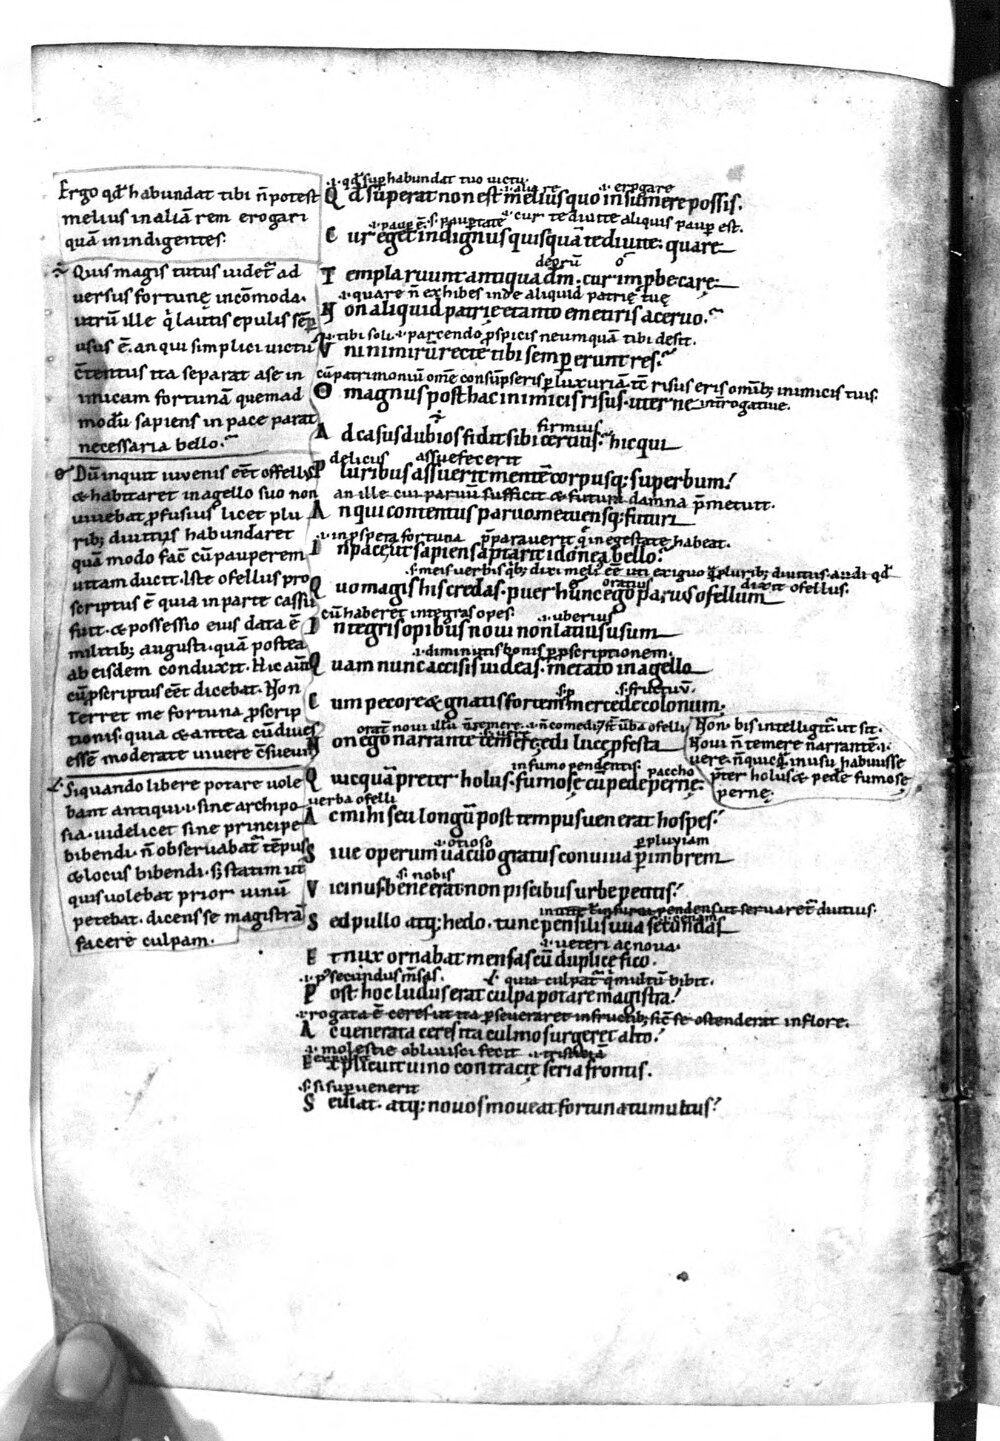 Ergo qđ habundat tibi ñ potest
melius in aliā rem erogari
quā in indigentes.
Quis magis tutus uidet̄ ad
uersus fortunę incōmoda.
utrū ille q̇ lautis epulis sēp
usus ē. an qui simplici uictu
c̄tentus ita separat a se in
imicam fortunā quemad
modū sapiens in pace parat
necessaria bello.
Dū inquit iuuenis eēt offellus
& habitaret in agello suo non
uiuebat ꝓfusius licet plu
rib; diuitiis habundaret
quā modo fac̄ cū pauperem
uitam ducit. Iste ofellus pro
scriptus ē quia in parte cassii
fuit. & possessio eius data ē
militib; augusti. quā postea
ab eisdem conduxit. Hic aūt
cū ꝓscriptus eēt dicebat. Non
terret me fortuna ꝓscrip
tionis. quia & antea cū diues
essē moderate uiuere c̄sueui.
Siquando libere potare uole
bant antiqui .i. sine archipo
sia. uidelicet sine principe
bibendi. ñ obseruabat̄ tēpus
& locus bibendi. s; statim ut
quis uolebat prior uinū
petebat. dicens se magistrā
facere culpam.
.i. qđ suphabundat tuo uictu.
.i. alia re .i. erogare
Qđ superat non est melius quo insumere possis.
.i. paup ē. s. paupertate .i. cur te diuite aliquis paup est.
Cur eget indignus quisquā te diuite. quare
deorū
Templa ruunt antiqua dm̄. cur improbe carę
.i. quare ñ exhibes inde aliquid patrię tuę
Non aliquid patrię e tanto emetiris aceruo.
.i. tibi soli .i. parcendo ꝓspicis ne umquā tibi desit.
Vni nimirū recte tibi semper erunt res.
cū patrimoniū omē consūpseris p luxuriā. tc̄ risus eris omīb; inimicis tuis.
O magnus posthac inimicis risus. uterne int̄rogatiue.
firmius
Ad casus dubios fidit sibi certius. hic qui
delicus assuefecerit
Pluribus assuerit mentē corpusq; superbum.
an ille cui parum sufficit & futura damna p̄metuit.
An qui contentus paruo metuensq; futuri
.i. in prospera fortuna p̄parauerit q̇ in egestate habeat.
In pace ut sapiens aptarit idonea bello.
.s. meis uerbis qb; dixi meli eē uti exiguo q̄ plurib; diuitiis. audi qđ
oratius dixit ofellus.
Quo magis his credas. puer hunc ego paruus ofellum
cū haberet integras opes. .i. uberius
Integris opibus noui non latius usum
.i. diminutis bonis p ꝓscriptionem.
Quam nunc accisis uideas. metato in agello
.s. fructuū.
Cum pecore & gnatis fortem mercede colonum;
Non ego narrante temere; edi luce ꝓfesta
Non. bis intelligit̄ ut sit.
Noui ñ temere ñarrantē .i.
uere. ñ quicq̄ in usu habuisse
p̄ter holus & pede fumosę
pernę.
in fumo pendentis. paccho
Quicquā preter holus. fumosę cū pede pernę.
uerba ofelli
Ac mihi seu longū post tempus uenerat hospes.
.i. otioso p pluuiam
Siue operum uacuo gratus conuiua p imbrem
.s. nobis
Vicinus bene erat non piscibus urbe petitis.
Sed pullo atq; hedo. tunc pensilis uua secundas
.i. ueteri ac noua.
Et nux ornabat mensas cū duplice fico.
.i. p̄ secundus m̄sas. quia culpat̄ q̇ multū bibit.
Post hoc ludus erat culpa potare magistra.
.i. rogata ē ceres ut ita ꝑseueraret in frugib; sic̄ se ostenderat in flore.
Ac uenerata ceres ita culmo surgeret alto.
.i. molestie obliuisci fecit
Explicuit uino contractę seria frontis.
.s. si supuenerit
Seuiat. atq; nouos moueat fortuna tumultus.